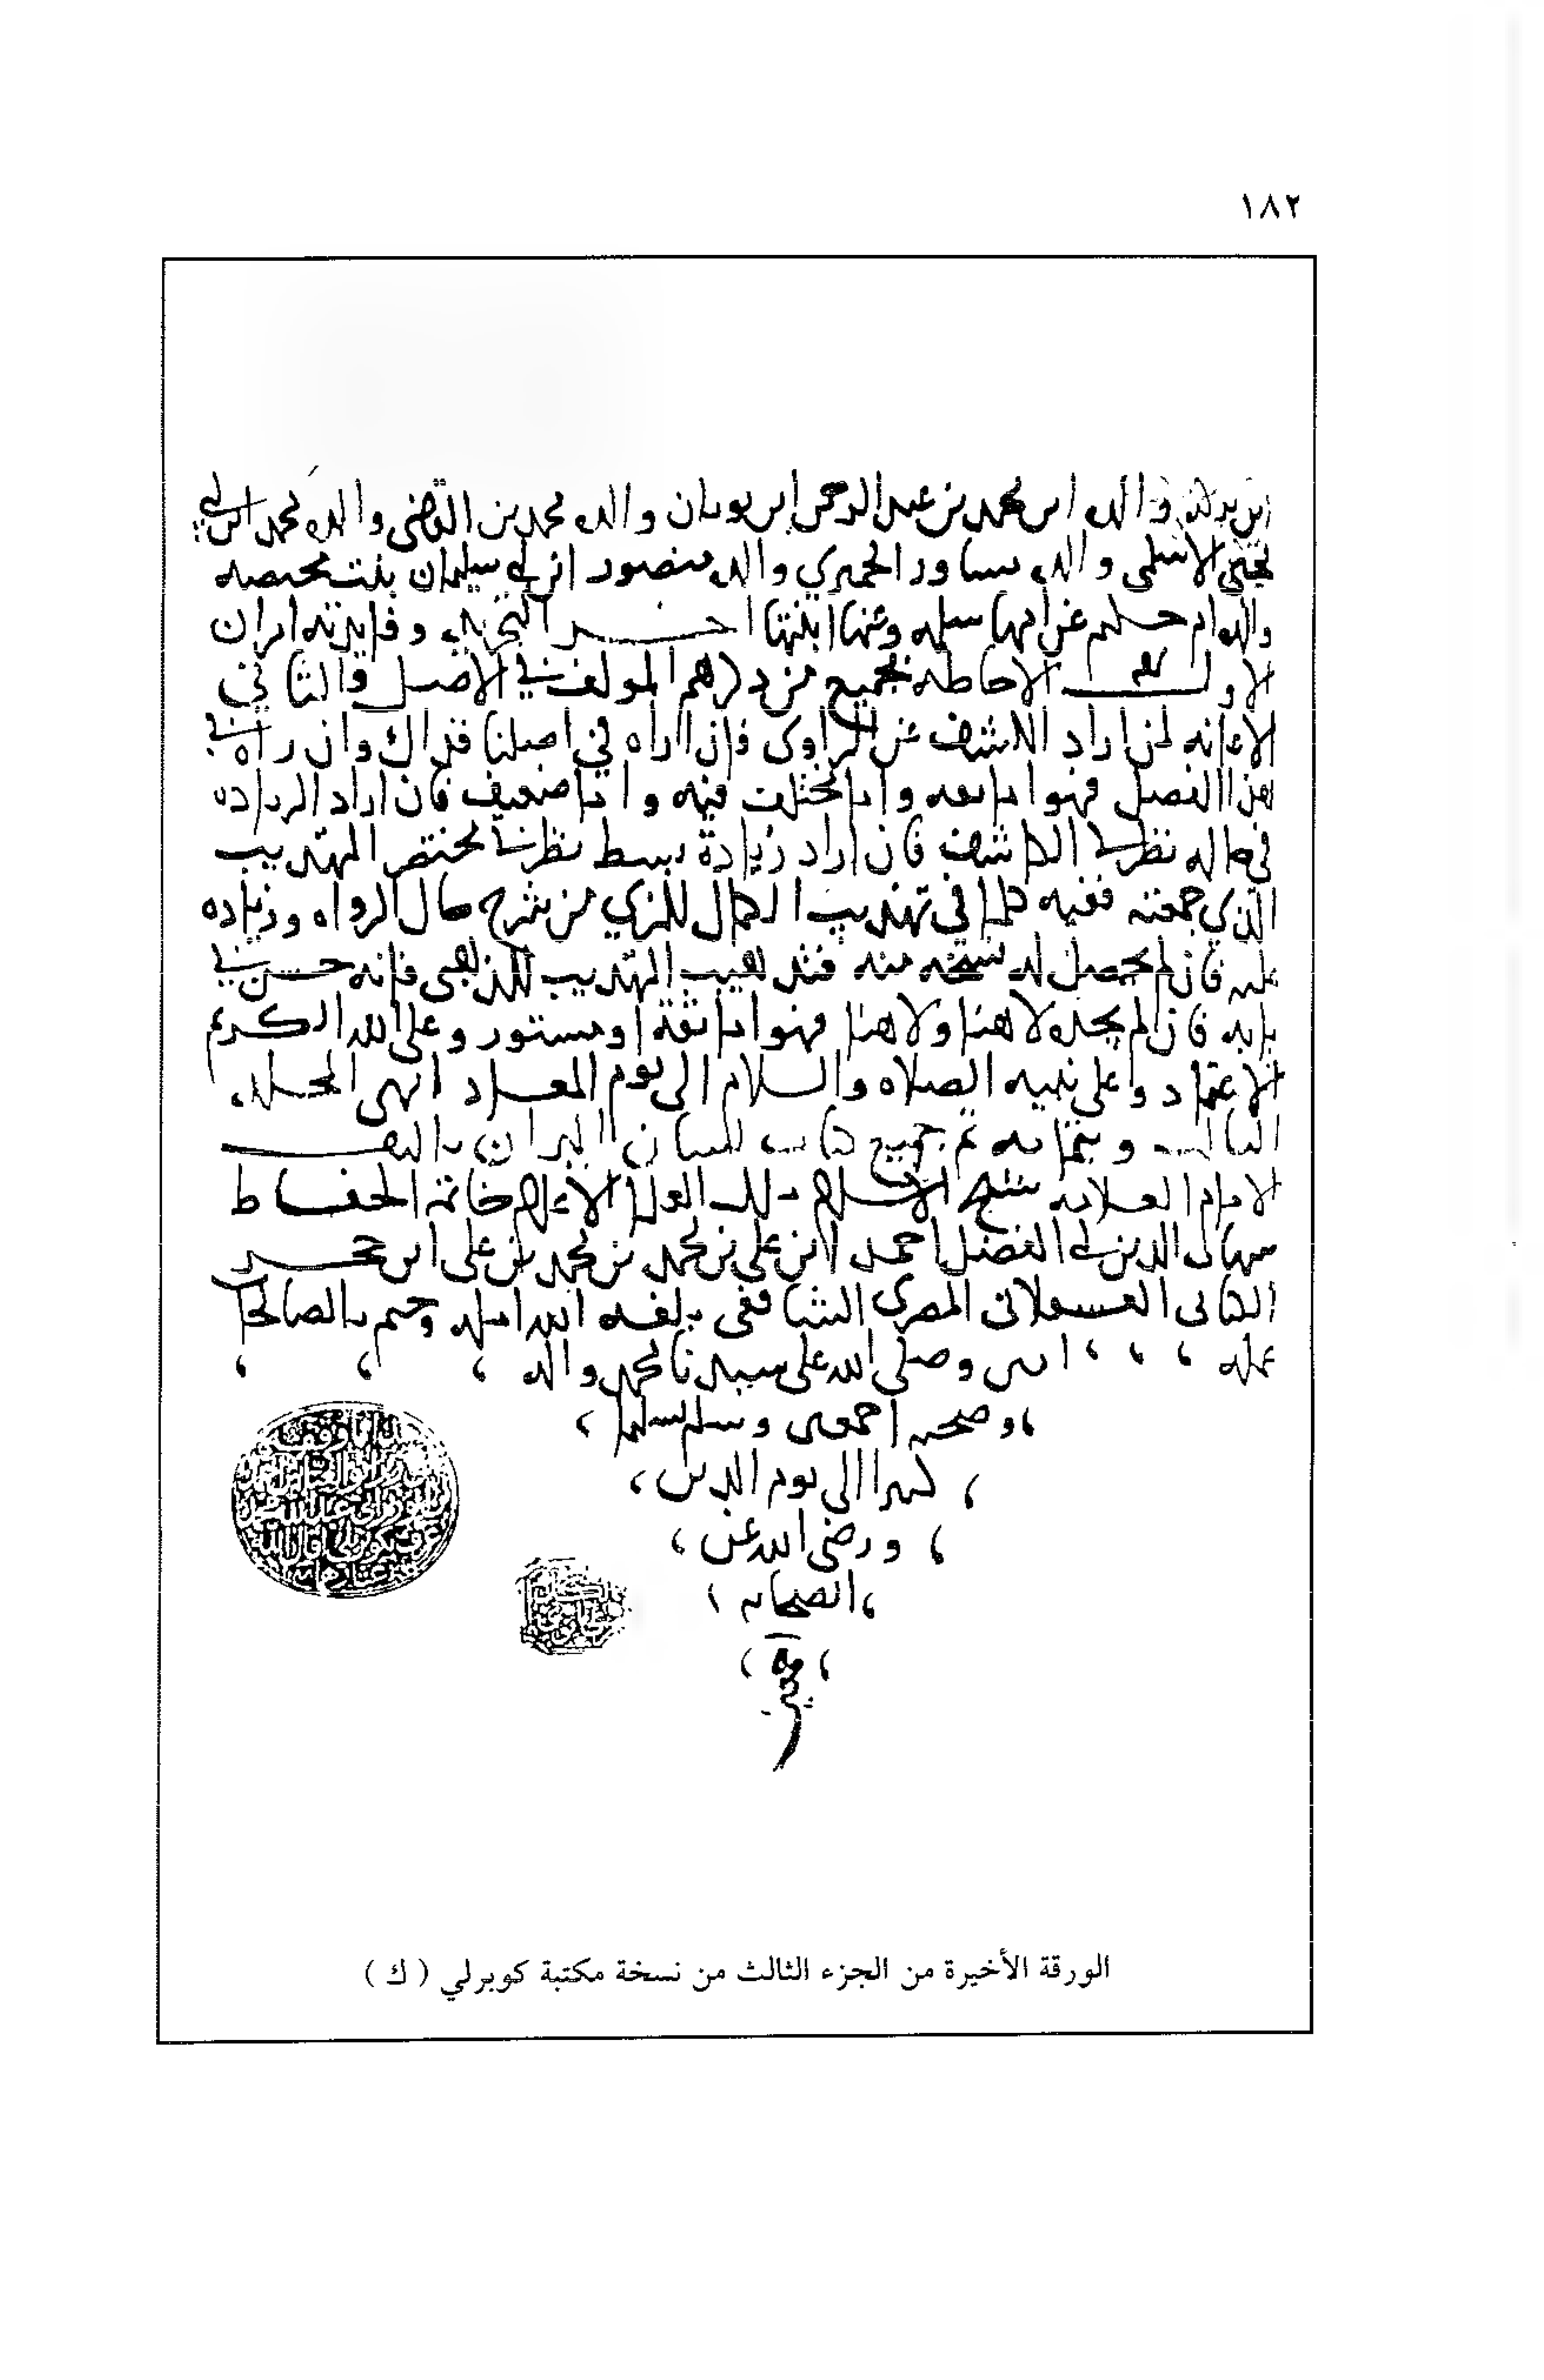 ١٨٢
والده ابن محمد بن عبد الرحمن ابن ثوبان والد محمد بن القاضي والده محمد ابن ابي
يحيى الاسلمي والده مساور الحميري والد منصور ابن ابي سليمان بنت محيصه
والده ام حكيم عن امها سلمه وعنها ابنتها اخر التجريد وفايدته امران
الاول الاحاطه بجميع من ذكرهم المولف في الاصل والثاني
الاعانه لمن اراد الكشف عن الراوى فان اراه في اصلنا فذاك وان راه في
هذا الفصل فهو اما ثقه واما مختلف فيه واما ضعيف فان اراد الزياده
في حاله نظر في الكاشف فان اراد زيادة بسط نظر في مختصر التهذيب
الذي جمعته ففيه كلما في تهذيب الكمال للمزي من شرح حال الرواه وزياده
عليه فان لم يحصل له نسخه منه فتذهيب التهذيب للذهبى فانه حسن في
بابه فان لم يجده لا هنا ولا هنا فهو اما ثقة او مستور وعلى الله الكريم
الاعتماد وعلى نبيه الصلاه والسلام الى يوم المعاد انهى المجلد
الثالث وبتمامه تم جميع كتاب لسان الميزان تاليف
الامام العلامه شيخ الاسلام ملك العلما الاعلام خاتمة الحفاظ
شهاب الدين ابي الفضل احمد ابن علي بن محمد بن محمد بن على ابن حجر
الكنانى العسقلانى المصرى الشافعى بلغه الله امله وختم بالصالحات
عمله ، ، ، امين وصلى الله على سيدنا محمد واله ، ، ،
، وصحبه اجمعين وسلم تسليما ،
، كثيرا الى يوم الدين ،
، ورضى الله عن ،
، الصحابه ،
الورقة الأخيرة من الجزء الثالث من نسخة مكتبة كوبرلي ( ك )